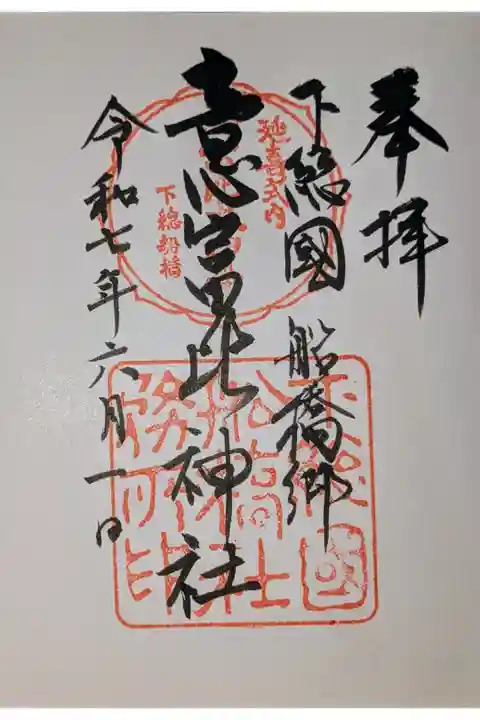 奉拝
下総國 船橋郷
延喜式内
意富比神社
下総船橋
令和七年六月一日